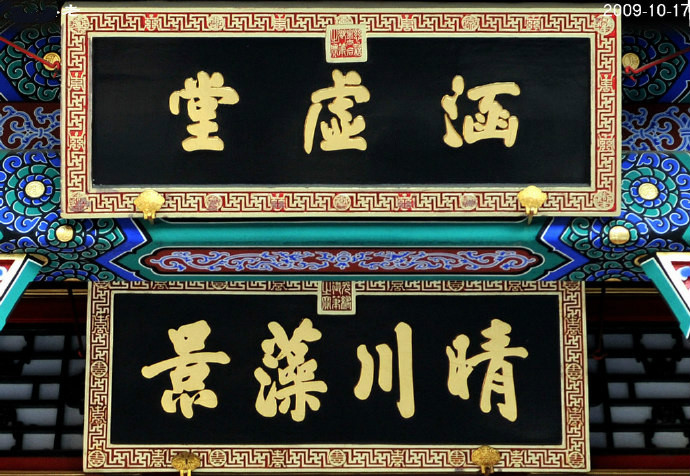 2009-10-17
涵虚堂
晴川藻景